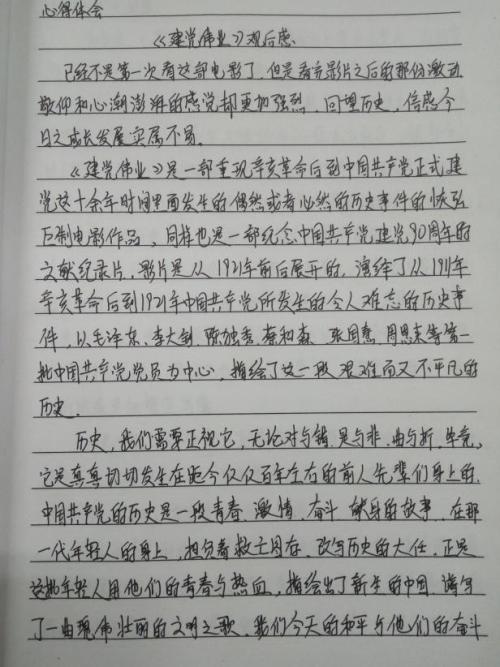 心得体会
《建党伟业》观后感
已经不是第一次看这部电影了,但是看完影片之后的那份激动
敬仰和心潮澎湃的感觉却更加强烈。回望历史,倍感今
日之成长发展实属不易。
《建党伟业》是一部重现辛亥革命后到中国共产党正式建
党这十余年时间里面发生的偶然或者必然的历史事件的恢弘
巨制电影作品,同样也是一部纪念中国共产党建党90周年的
文献纪录片,影片是从1921年前后展开的,演绎了从1911年
辛亥革命后到1921年中国共产党所发生的令人难忘的历史事
件,以毛泽东、李大钊、陈独秀、蔡和森、张国焘、周恩来等第一
批中国共产党党员为中心,描绘了这一段艰难而又不平凡的
历史。
历史,我们需要正视它,无论对与错、是与非、曲与折,毕竟,
它是真真切切发生在距今仅仅百年左右的前人先辈们身上的,
中国共产党的历史是一段青春、激情、奋斗、献身的故事,在那
一代年轻人的身上,担负着救亡图存、改写历史的大任,正是
这批年轻人用他们的青春与热血,描绘出了新生的中国,谱写
了一曲瑰伟壮丽的文明之歌,我们今天的和平与他们的奋斗